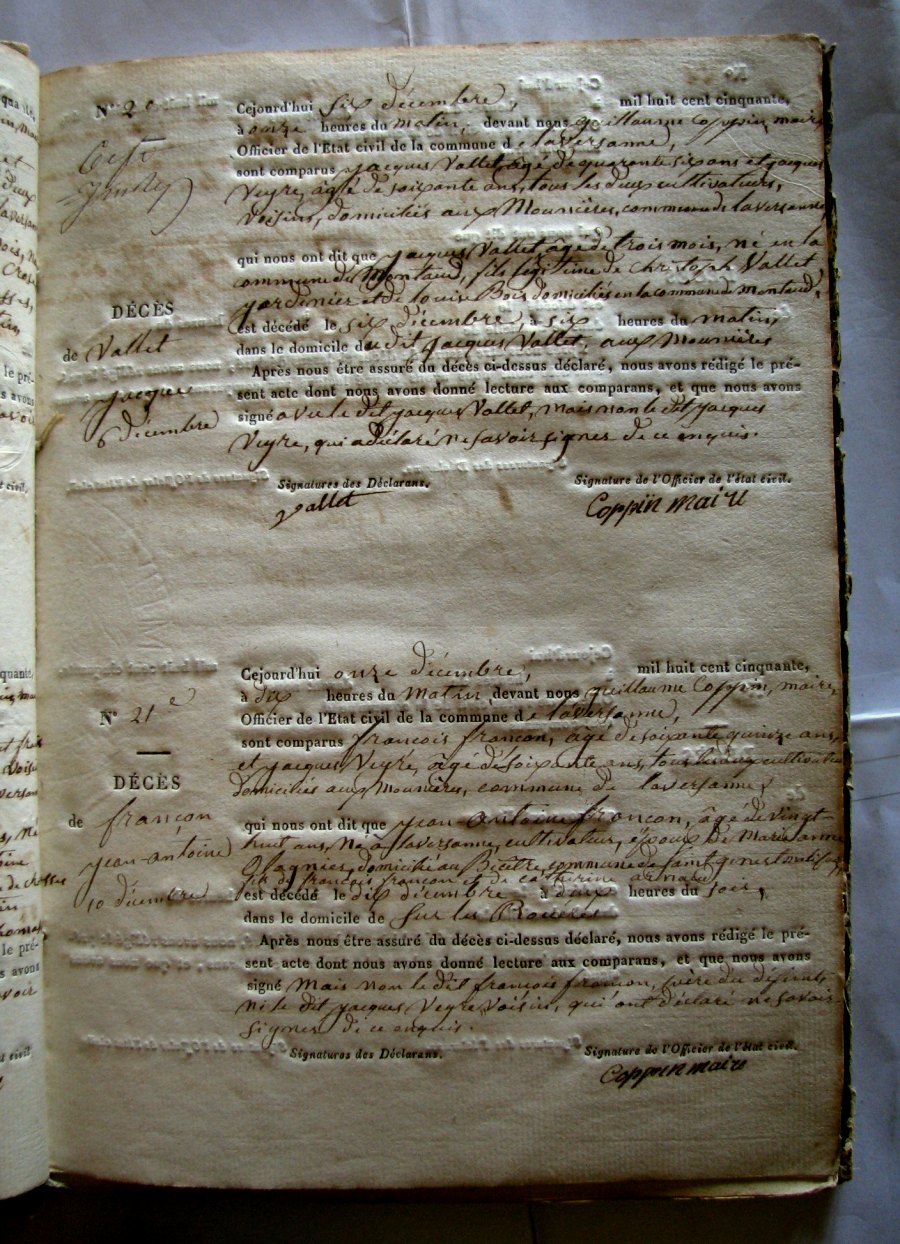 N° 20
Cejourd'hui six décembre, mil huit cent cinquante,
à onze heures du matin, devant nous guillaume Coppin, maire
Officier de l'Etat civil de la commune de laversanne,
sont comparus jacques Vallet âgé de quarante six ans et jacques
Veyre, âgé de soixante ans, tous les deux cultivateurs,
Voisins, domiciliés aux Mounières, commune de laversanne
qui nous ont dit que jacques Vallet âgé de trois mois, né en la
commune du Montaud, fils légitime de Christoph Vallet
jardinier et de louise Bois domiciliés en la commune de montaud,
est décédé le six décembre, à six heures du matin,
dans le domicile du dit jacques Vallet, aux Mounières
Après nous être assuré du décès ci-dessus déclaré, nous avons rédigé le pré-
sent acte dont nous avons donné lecture aux comparans, et que nous avons
signé avec le dit jacques Vallet, mais non le dit jacques
Veyre, qui a déclaré ne savoir signer de ce enquis.
DÉCÈS
de Vallet
jacques
6 décembre
Signatures des Déclarans.
Signature de l'Officier de l'état civil.
Vallet
Coppin maire
N° 21e
Cejourd'hui onze décembre, mil huit cent cinquante,
à dix heures du matin, devant nous guillaume Coppin, maire,
Officier de l'Etat civil de la commune de laversanne,
sont comparus françois françon, âgé de soixante quinze ans,
et jacques Veyre, âgé de soixante ans, tous les deux cultivateurs
domiciliés aux Mounières, commune de laversanne,
qui nous ont dit que jean-Antoine françon, âgé de vingt-
huit ans, Né à laversanne, cultivateur, époux de Marie anne
domicilié au Bicêtre, commune de saint genest
françois françon et de catherine arnaud
est décédé le dix décembre à deux heures du soir,
dans le domicile de sur les
Après nous être assuré du décès ci-dessus déclaré, nous avons rédigé le pré-
sent acte dont nous avons donné lecture aux comparans, et que nous avons
signé Mais non le dit françois françon, père du défunt,
ni le dit jacques Veyre voisin, qui ont déclaré ne savoir
signer de ce enquis.
DÉCÈS
de françon
jean-antoine
10 décembre
Signatures des Déclarans.
Signature de l'Officier de l'état civil.
Coppin maire